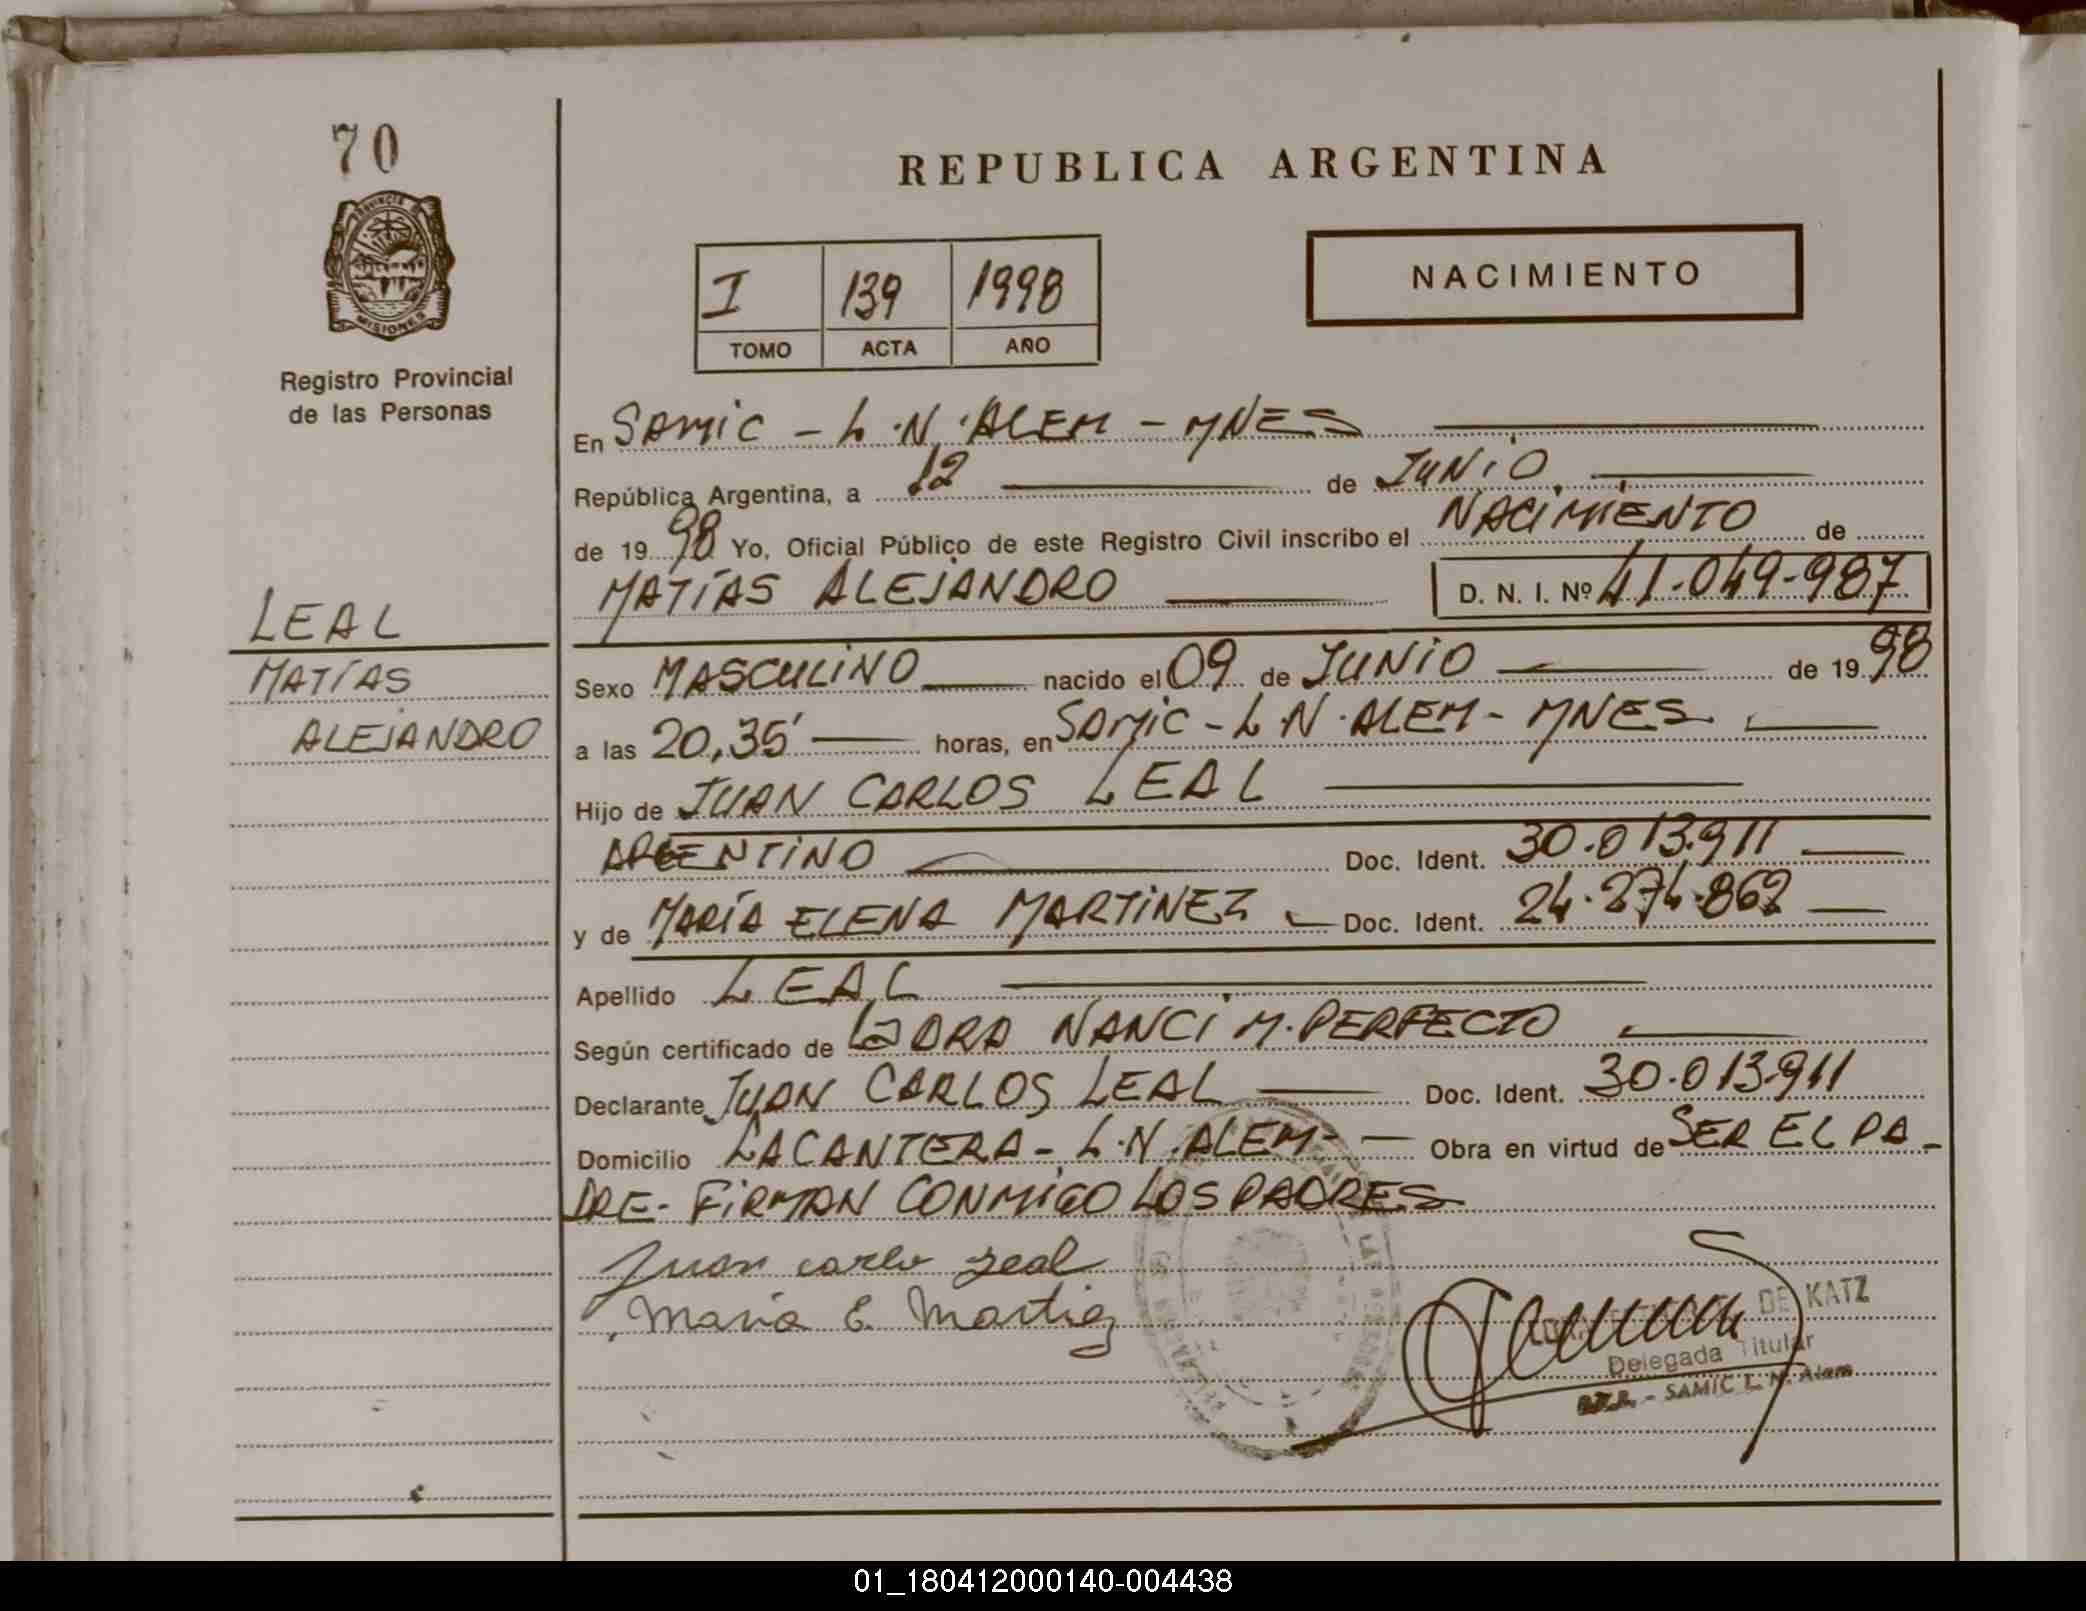 70
PROVINCIA DE
MISIONES
Registro Provincial
de las Personas
REPUBLICA ARGENTINA
I 139 1998
TOMO ACTA AÑO
NACIMIENTO
En SAMIC - L.N.ALEM - MNES
República Argentina, a 12 de JUNIO
de 1998 Yo, Oficial Público de este Registro Civil inscribo el NACIMIENTO de
MATÍAS ALEJANDRO D. N. I. Nº 41.049.987
LEAL
MATÍAS
ALEJANDRO
Sexo MASCULINO nacido el 09 de JUNIO de 1998
a las 20,35' horas, en SAMIC - L.N.ALEM - MNES
Hijo de JUAN CARLOS LEAL
ARGENTINO Doc. Ident. 30.013.911
y de MARÍA ELENA MARTINEZ Doc. Ident. 24.274.862
Apellido LEAL
Según certificado de LA DRA NANCI M. PERFECTO
Declarante JUAN CARLOS LEAL Doc. Ident. 30.013.911
Domicilio LA CANTERA - L.N.ALEM - Obra en virtud de SER EL PA-
DRE - FIRMAN CONMIGO LOS PADRES
Juan carlo Leal
Maria E. Martiez
DE KATZ
Delegada Titular
- SAMIC L. N. Alem
01_180412000140-004438